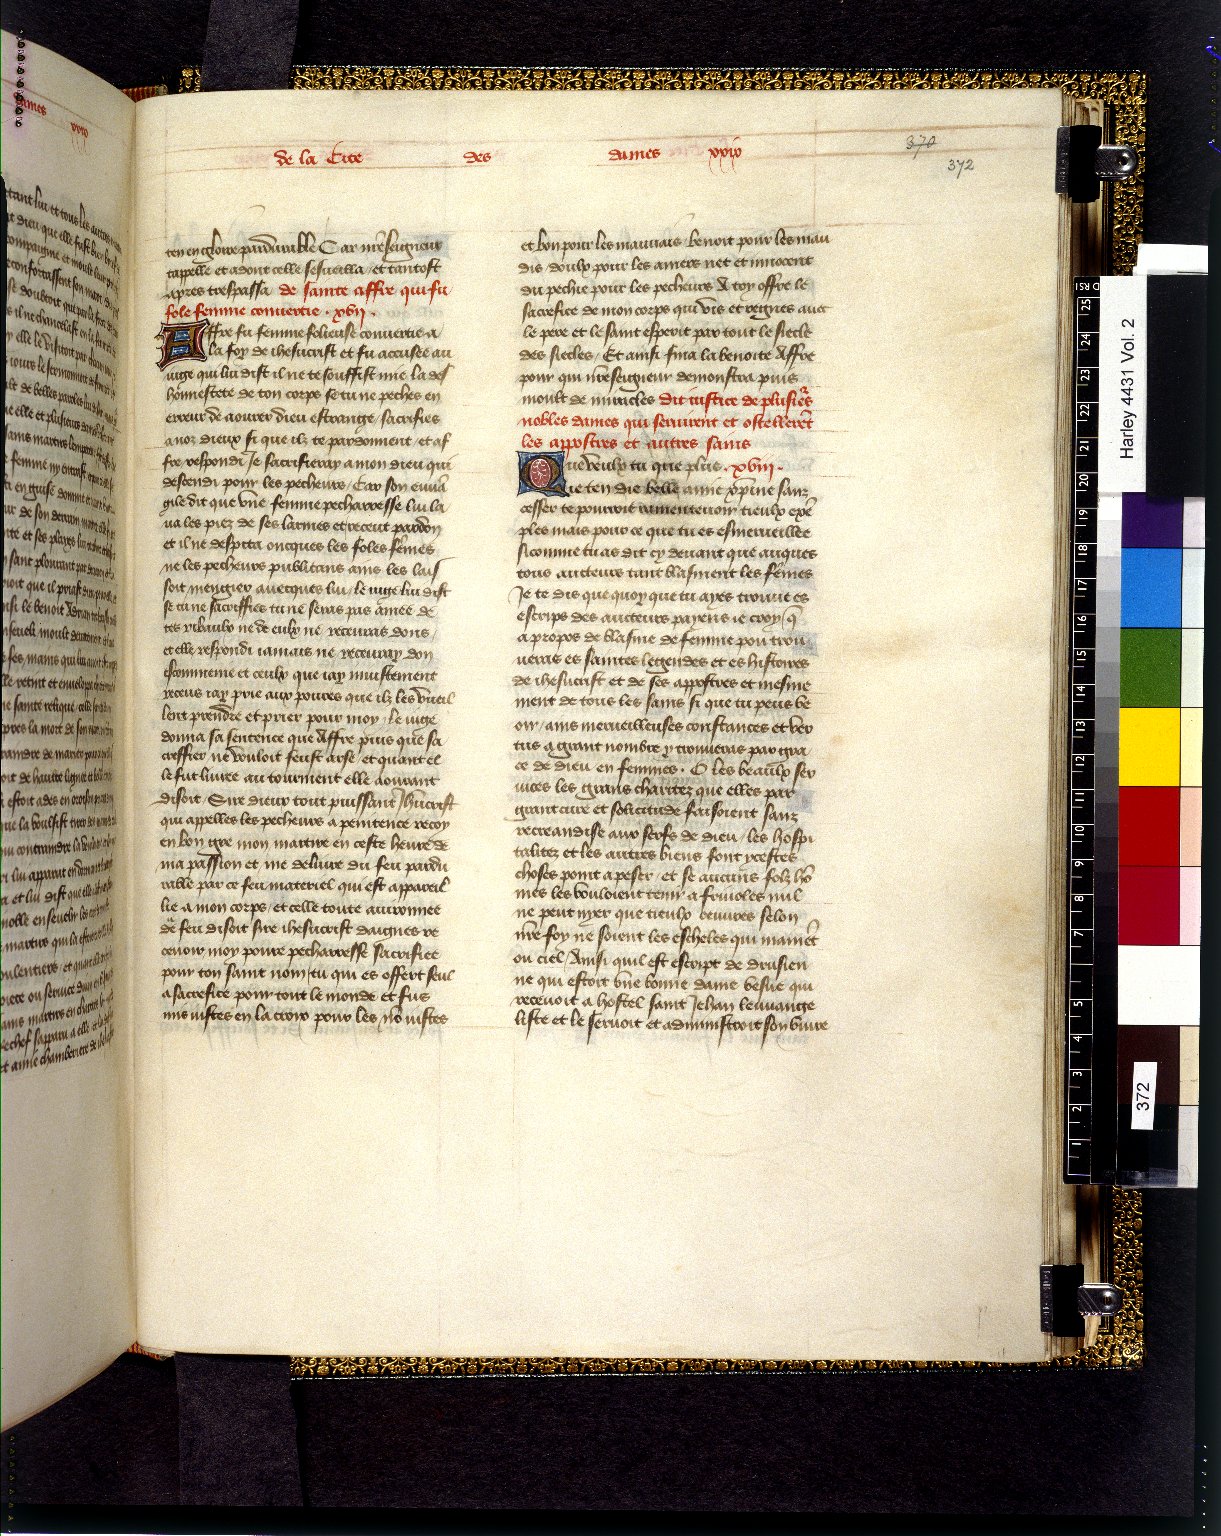 de la Cite des dames xxix
370
372
ten en gloire pardurable Car nr̄eseigneur
tappelle et adont celle sesueilla et tantost
apres trespassa de sainte affre qui fu
fole femme conuertie . xvii .
Affre fu femme folieuse conuertie a
la foy de ihesucrist et fu accusee au
iuge qui lui dist il ne te souffist mie la des
honnestete de ton corps se tu ne peches en
erreur de aourer dieu estrange sacrifies
a noz dieux si que ilz te pardonnent et af
fre respondi Je sacrifieray a mon dieu qui
descendi pour les pecheurs Car son euuā
gile dit que vne femme pecharresse lui la
ua les piez de ses larmes et receut pardon
et il ne desprita oncques les foles fēmes
ne les pecheurs publicans ains les lais
soit mengier auecques lui le iuge lui dist
se tu ne sacriffies tu ne seras pas amee de
tes ribaulx ne de eulx ne receuras dons
et elle respondi iamais ne receuray don
escommenie et ceulx que iay iniustement
receus iay prie aux poures que ilz les vueil
lent prendre et prier pour moy le iuge
donna sa sentence que Affre puis que sa
criffier ne vouloit feust arse et quant el
le fut liuree au tourment elle aourant
disoit Sire dieux tout puissant Jhūcrist
qui appelles les pecheurs a penitence recoy
en bon gre mon martire en ceste heure de
ma passion et me deliure du feu pardu
rable par ce feu materiel qui est appareil
lie a mon corps et celle toute auironnee
de feu disoit sire ihesucrist daignes re
ceuoir moy poure pecharresse sacrifiee
pour ton saint nom tu qui es offert seul
a sacrefice pour tout le monde et fus
mis iustes en la croix pour les nō iustes
et bon pour les mauuais benoit pour les mau
dis doulx pour les amers net et innocent
du pechie pour les pecheurs A toy offre le
sacrefice de mon corps qui vis et regnes auec
le pere et le saint esperit par tout le siecle
des siecles Et ainsi fina la benoite Affre
pour qui nr̄eseigneur demonstra puis
moult de miracles Dit iustice de plusieˢ
nobles dames qui seruirent et ostellerēt
les appostres et autres sains
Que veulx tu que plus . xviii .
ie ten die belle amie xp̄ine sanz
cesser te pourroit ramenteuoir tieulx exē
ples mais pour ce que tu es esmerueillee
sicomme tu as dit cy deuant que auques
tous aucteurs tant blasment les fēmes
Je te dis que quoy que tu ayes trouue es
escrips des aucteurs payens ie croy q̄
a propos de blasme de femme pou trou
ueras es saintes legendes et es histoires
de ihesucrist et de ses appostres et mesme
ment de tous les sains si que tu peus ve
oir ains merueilleuses constances et ver
tus a grant nombre y trouueras par gra
ce de dieu en femmes . O les beaulx ser
uices les grans charitez que elles par
grant cure et solicitude faisoient sanz
recreandise aux serfs de dieu les hospi
talitez et les autres biens font ycestes
choses point a peser et se aucuns folz hō
mes les vouloient tenir a friuoles nul
ne peut nyer que tieulx oeuures selon
nr̄e foy ne soient les escheles qui mainēt
ou ciel Ainsi quil est escript de drusien
ne qui estoit vne bonne dame vesue qui
receuoit a hostel saint Jehan leuuange
liste et le seruoit et administroit son viure
Harley 4431 Vol. 2
372